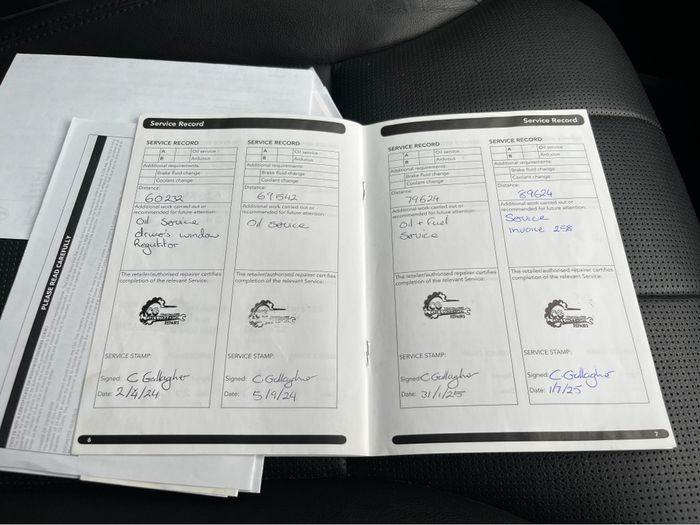 PLEASE READ CAREFULLY
Service Record
SERVICE RECORD
A Oil service
B Arduous
Additional requirements:
Brake fluid change
Coolant change
Distance:
60232
Additional work carried out or
recommended for future attention:
Oil Service
driver's window
Regulator
The retailer/authorised repairer certifies
completion of the relevant Service:
SERVICE STAMP:
Signed: C Gallagher
Date: 2/4/24
SERVICE RECORD
A Oil service
B Arduous
Additional requirements:
Brake fluid change
Coolant change
Distance:
69542
Additional work carried out or
recommended for future attention:
Oil Service
The retailer/authorised repairer certifies
completion of the relevant Service:
SERVICE STAMP:
Signed: C Gallagher
Date: 5/9/24
6
Service Record
SERVICE RECORD
A Oil service
B Arduous
Additional requirements:
Brake fluid change
Coolant change
Distance:
79624
Additional work carried out or
recommended for future attention:
Oil + Fuel
Service
The retailer/authorised repairer certifies
completion of the relevant Service:
REPAIRS
SERVICE STAMP:
Signed: C Gallagher
Date: 31/1/25
SERVICE RECORD
A Oil service
B Arduous
Additional requirements:
Brake fluid change
Coolant change
Distance:
89624
Additional work carried out or
recommended for future attention:
Service
Invoice 258
The retailer/authorised repairer certifies
completion of the relevant Service:
REPAIRS
SERVICE STAMP:
Signed: C.Gallagher
Date: 1/7/25
7